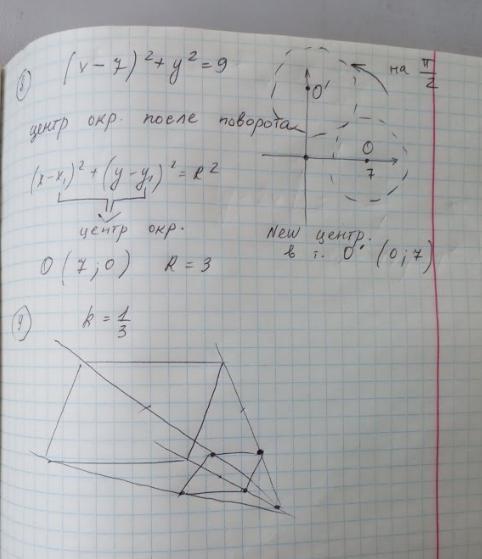 8) (x - 7)² + y² = 9
на π/2
O'
центр окр. после поворота
O
7
(x - x₁)² + (y - y₁)² = R²
центр окр.
O (7; 0) R = 3
New центр.
в т. O' (0; 7)
9) k = 1/3